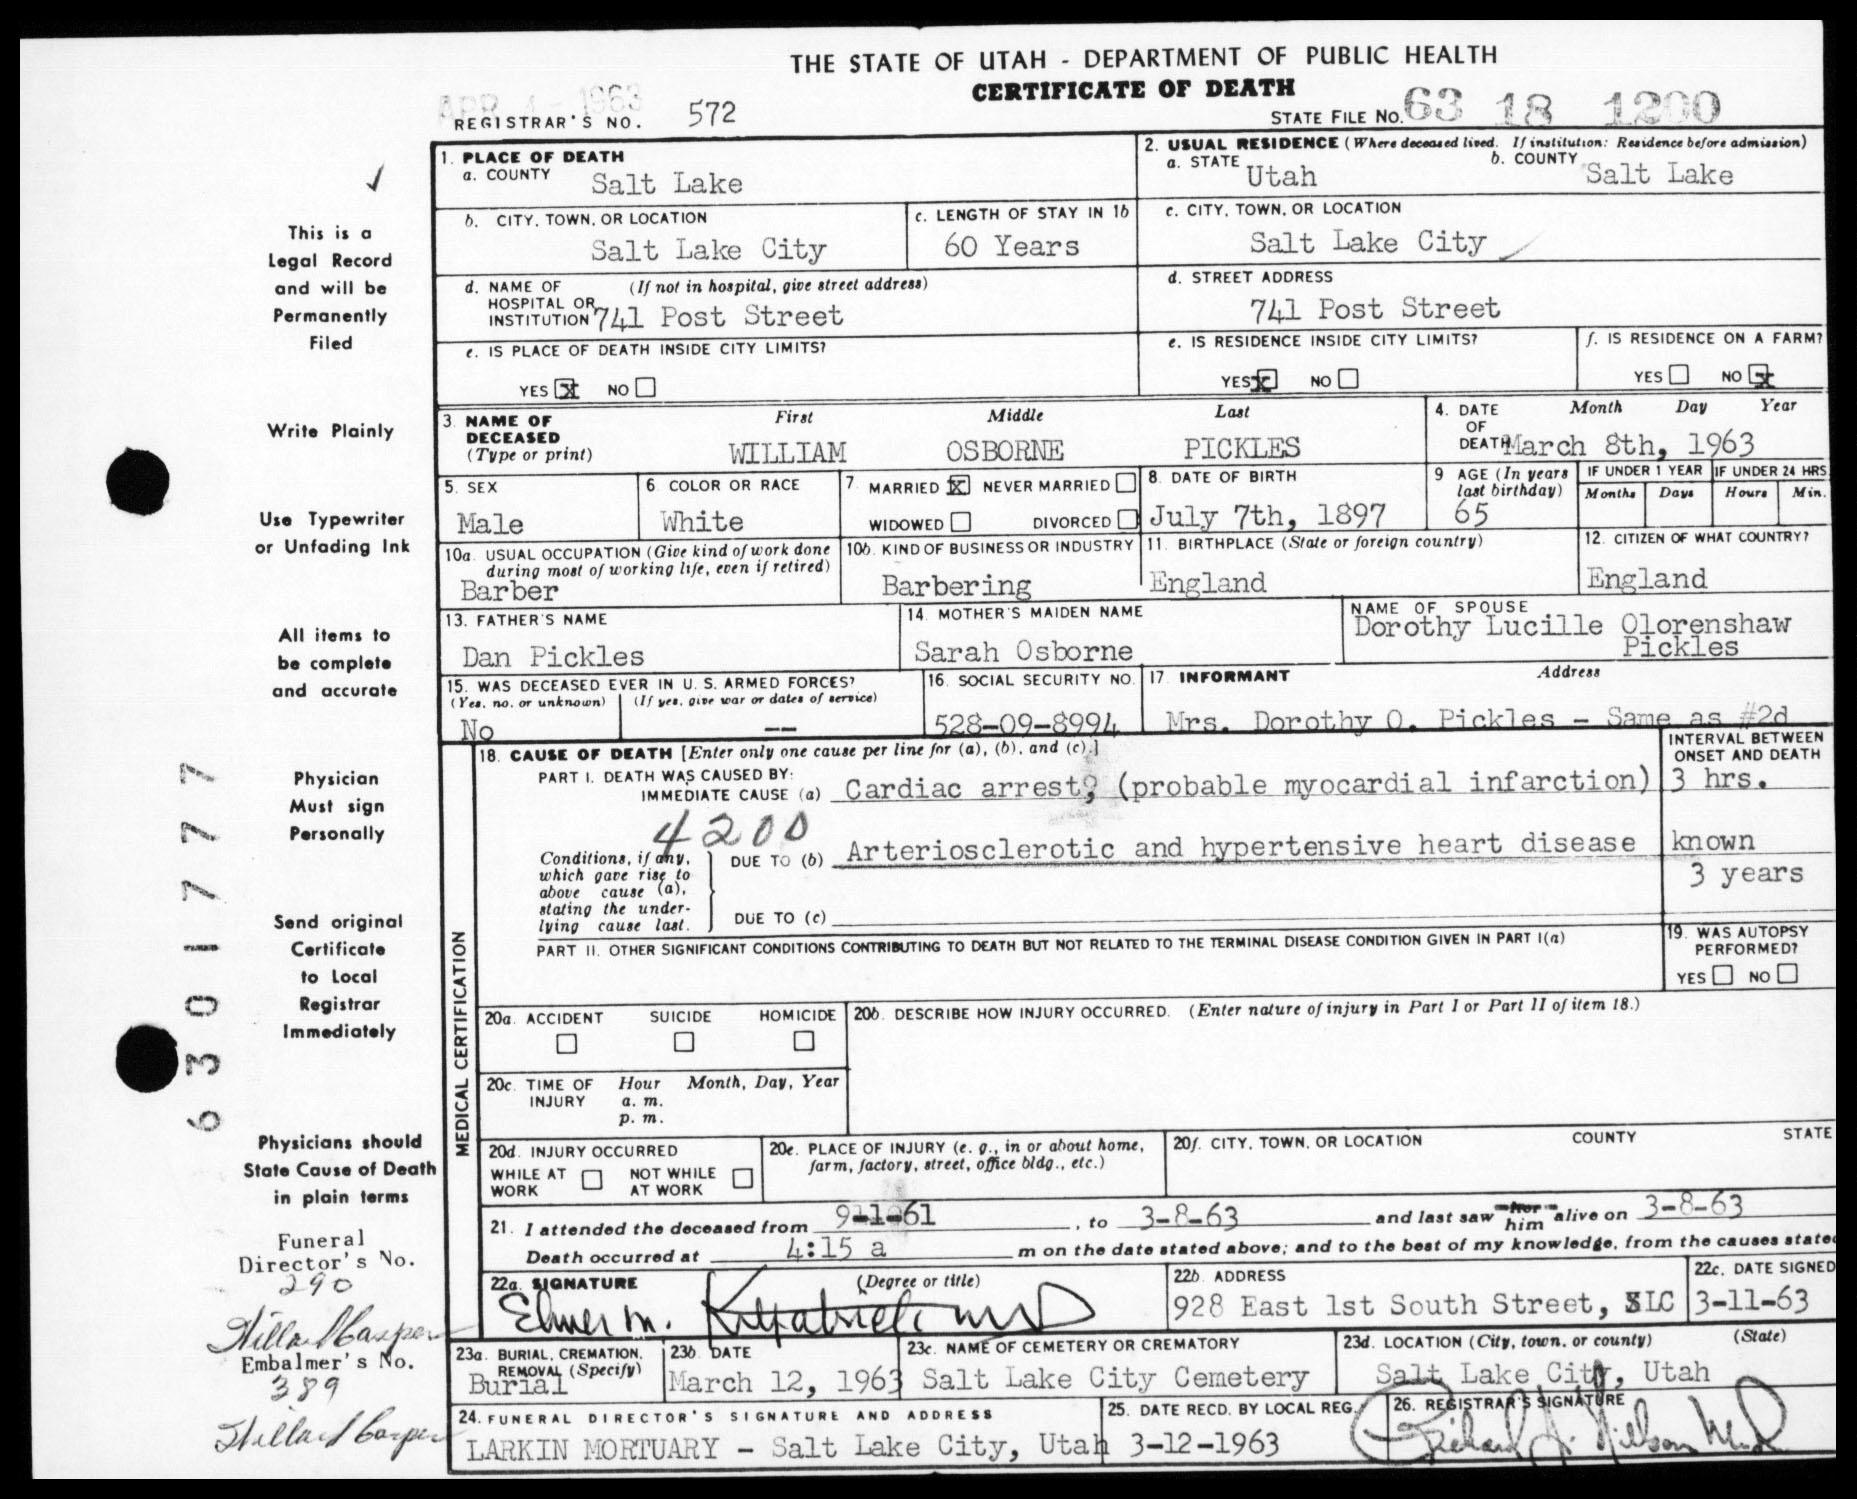 THE STATE OF UTAH - DEPARTMENT OF PUBLIC HEALTH
CERTIFICATE OF DEATH
APR 1 - 1963
REGISTRAR'S NO. 572
STATE FILE NO. 63 18 1200
1. PLACE OF DEATH
a. COUNTY Salt Lake
2. USUAL RESIDENCE (Where deceased lived. If institution: Residence before admission)
a. STATE Utah b. COUNTY Salt Lake
b. CITY, TOWN, OR LOCATION Salt Lake City
c. LENGTH OF STAY IN 1b 60 Years
c. CITY, TOWN, OR LOCATION Salt Lake City
d. NAME OF HOSPITAL OR INSTITUTION (If not in hospital, give street address) 741 Post Street
d. STREET ADDRESS 741 Post Street
e. IS PLACE OF DEATH INSIDE CITY LIMITS?
YES X NO
e. IS RESIDENCE INSIDE CITY LIMITS?
YES X NO
f. IS RESIDENCE ON A FARM?
YES NO X
3. NAME OF DECEASED (Type or print)
First Middle Last
WILLIAM OSBORNE PICKLES
4. DATE OF DEATH Month Day Year
March 8th, 1963
5. SEX Male
6. COLOR OR RACE White
7. MARRIED X NEVER MARRIED
WIDOWED DIVORCED
8. DATE OF BIRTH July 7th, 1897
9 AGE (In years last birthday) 65
IF UNDER 1 YEAR Months Days
IF UNDER 24 HRS. Hours Min.
10a. USUAL OCCUPATION (Give kind of work done during most of working life, even if retired)
Barber
10b. KIND OF BUSINESS OR INDUSTRY
Barbering
11. BIRTHPLACE (State or foreign country)
England
12. CITIZEN OF WHAT COUNTRY?
England
13. FATHER'S NAME
Dan Pickles
14. MOTHER'S MAIDEN NAME
Sarah Osborne
NAME OF SPOUSE
Dorothy Lucille Olorenshaw
Pickles
15. WAS DECEASED EVER IN U. S. ARMED FORCES?
(Yes, no, or unknown) (If yes, give war or dates of service)
No --
16. SOCIAL SECURITY NO.
528-09-8994
17. INFORMANT Address
Mrs. Dorothy O. Pickles - Same as #2d
MEDICAL CERTIFICATION
18. CAUSE OF DEATH [Enter only one cause per line for (a), (b), and (c).]
INTERVAL BETWEEN ONSET AND DEATH
PART I. DEATH WAS CAUSED BY:
IMMEDIATE CAUSE (a) Cardiac arrest, (probable myocardial infarction) 3 hrs.
4200
Conditions, if any, which gave rise to above cause (a), stating the underlying cause last.
DUE TO (b) Arteriosclerotic and hypertensive heart disease known
3 years
DUE TO (c)
PART II. OTHER SIGNIFICANT CONDITIONS CONTRIBUTING TO DEATH BUT NOT RELATED TO THE TERMINAL DISEASE CONDITION GIVEN IN PART I(a)
19. WAS AUTOPSY PERFORMED?
YES NO
20a. ACCIDENT SUICIDE HOMICIDE
20b. DESCRIBE HOW INJURY OCCURRED. (Enter nature of injury in Part I or Part II of item 18.)
20c. TIME OF INJURY Hour Month, Day, Year
a. m.
p. m.
20d. INJURY OCCURRED
WHILE AT WORK NOT WHILE AT WORK
20e. PLACE OF INJURY (e. g., in or about home, farm, factory, street, office bldg., etc.)
20f. CITY, TOWN, OR LOCATION COUNTY STATE
21. I attended the deceased from 9-1-61, to 3-8-63 and last saw her him alive on 3-8-63
Death occurred at 4:15 a m on the date stated above; and to the best of my knowledge, from the causes state
22a. SIGNATURE (Degree or title)
Elmer M. Kilpatrick MD
22b. ADDRESS
928 East 1st South Street, SLC
22c. DATE SIGNED
3-11-63
23a. BURIAL, CREMATION, REMOVAL (Specify)
Burial
23b. DATE
March 12, 1963
23c. NAME OF CEMETERY OR CREMATORY
Salt Lake City Cemetery
23d. LOCATION (City, town, or county) (State)
Salt Lake City, Utah
24. FUNERAL DIRECTOR'S SIGNATURE AND ADDRESS
LARKIN MORTUARY - Salt Lake City, Utah
25. DATE RECD. BY LOCAL REG.
3-12-1963
26. REGISTRAR'S SIGNATURE
Richard Nilson M.D.
This is a
Legal Record
and will be
Permanently
Filed
Write Plainly
Use Typewriter
or Unfading Ink
All items to
be complete
and accurate
Physician
Must sign
Personally
Send original
Certificate
to Local
Registrar
Immediately
Physicians should
State Cause of Death
in plain terms
Funeral
Director's No.
290
Willard Casper
Embalmer's No.
389
Willard Casper
6301777